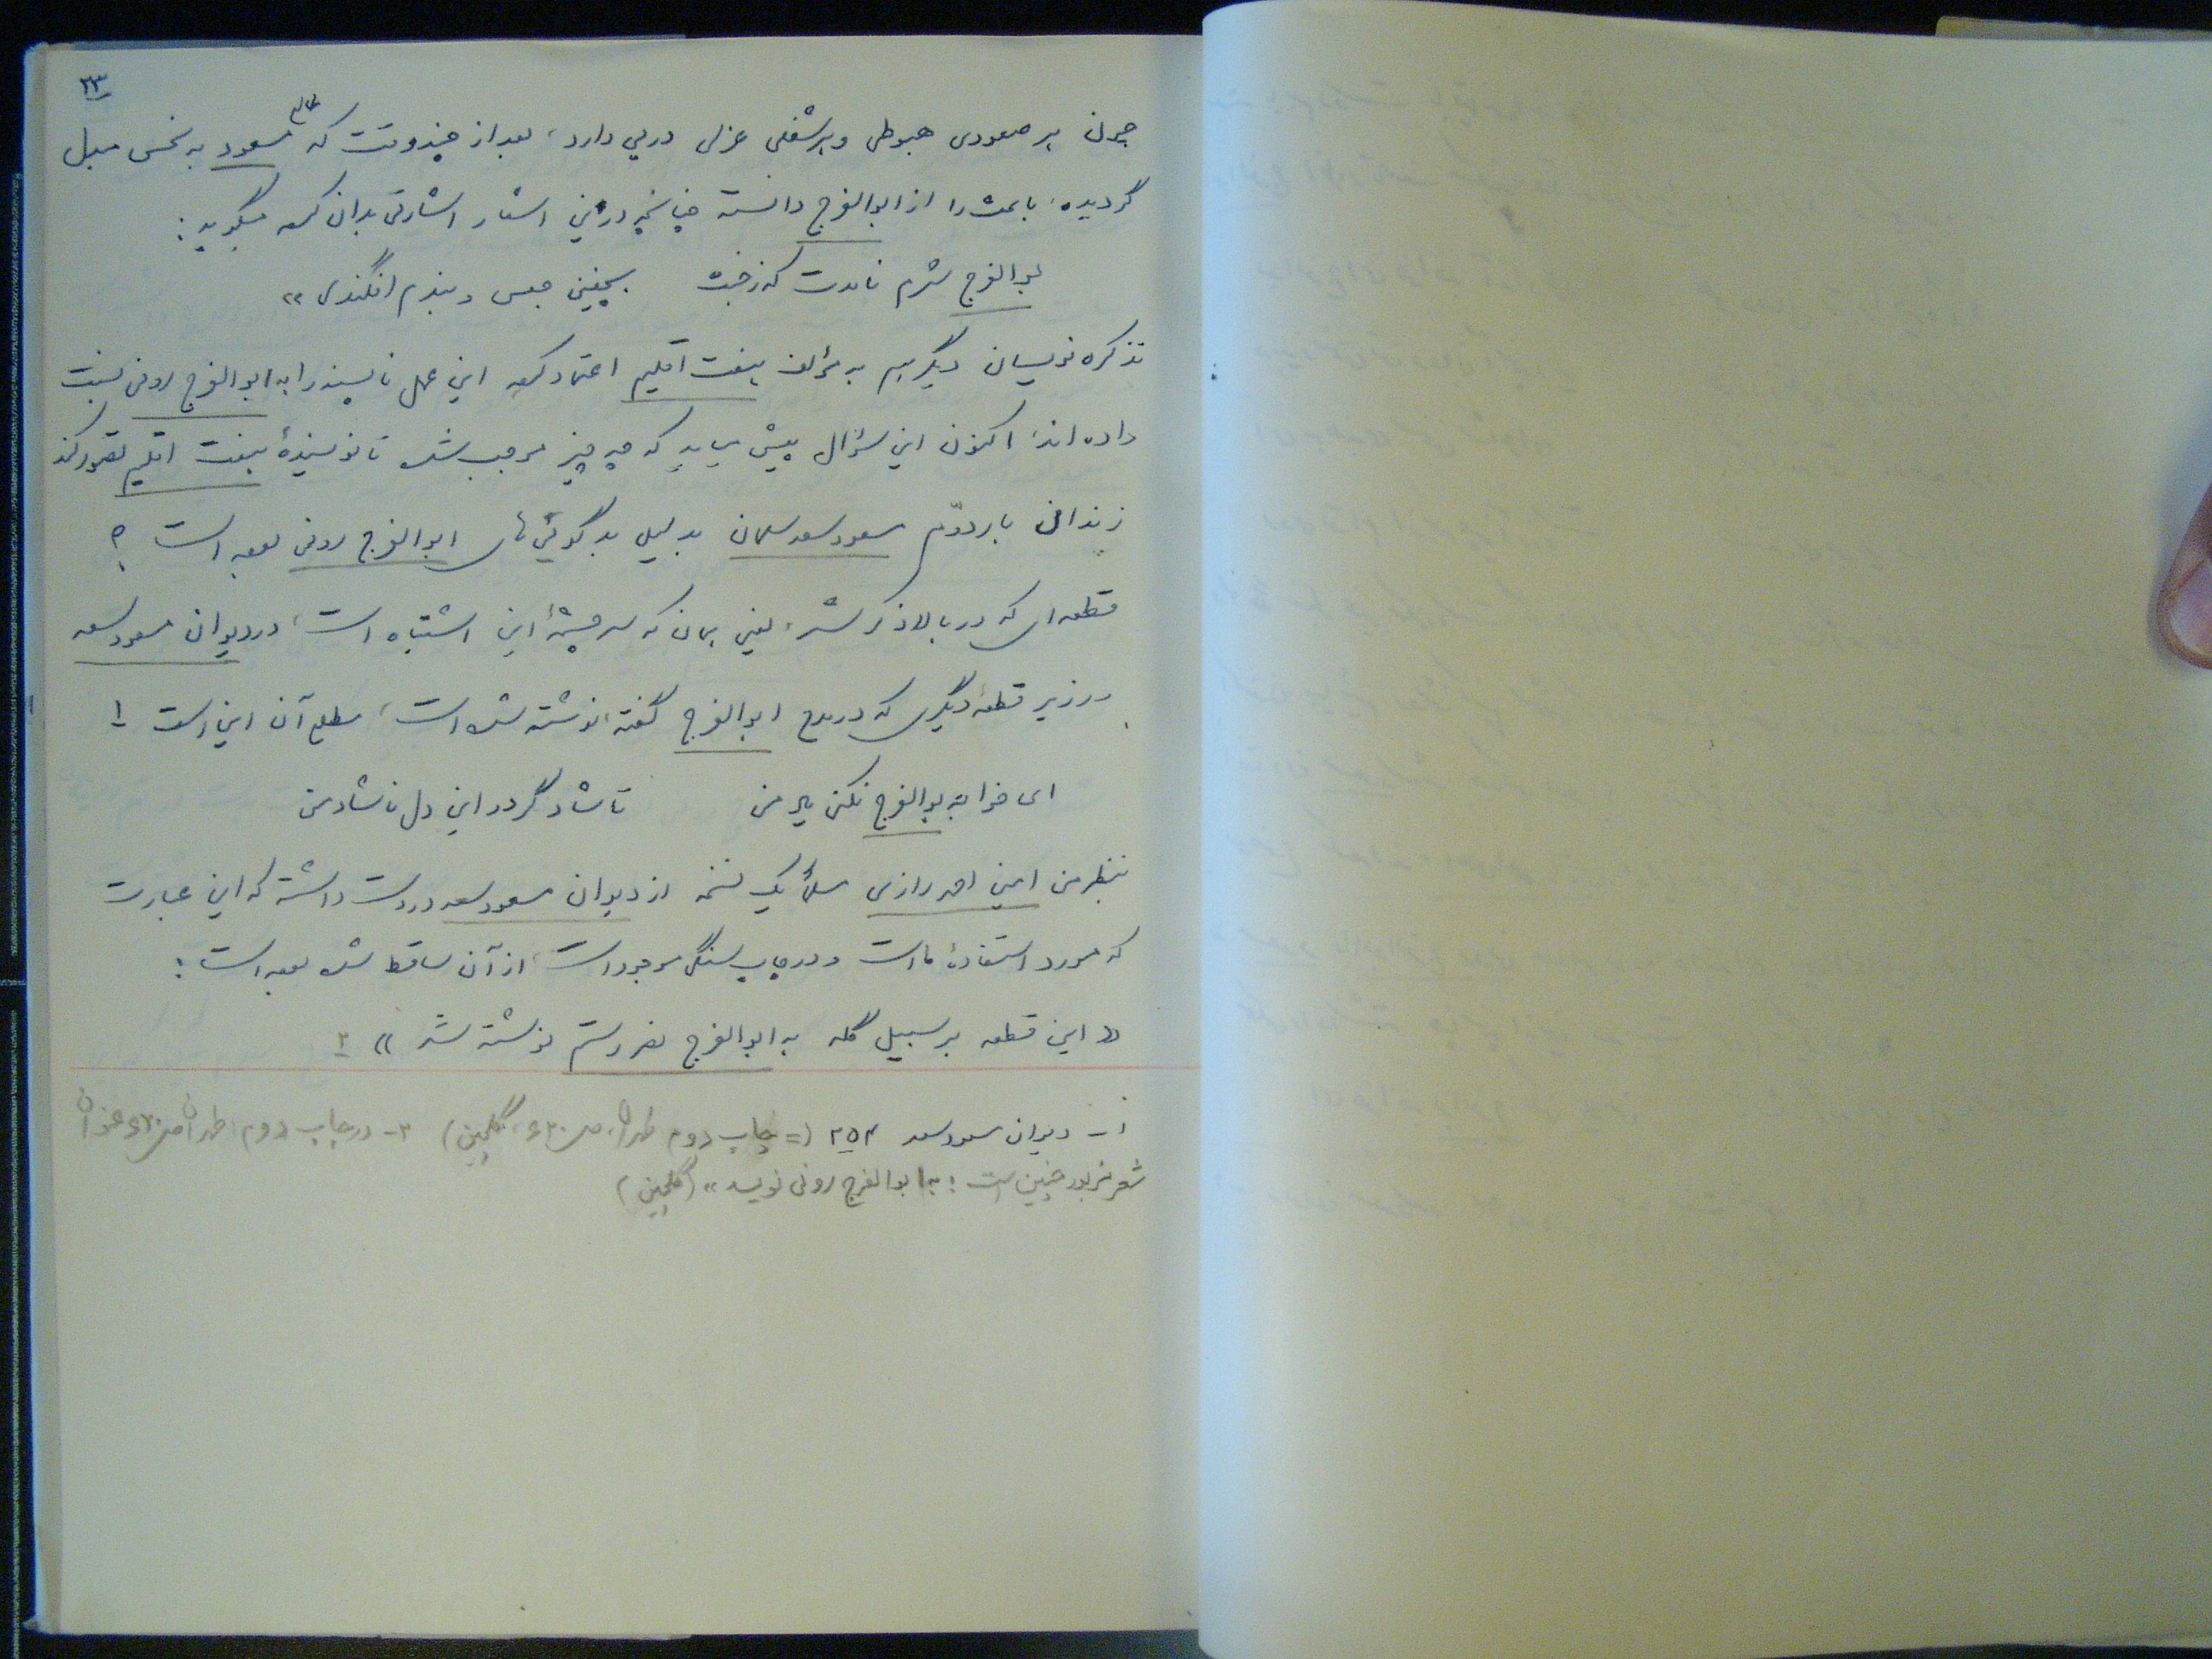 ۲۳
چون هر صعودی هبوطی و هر شغلی عزلی در پی دارد، بعد از چند وقت که مسعود به نحس مبدل
گردیده، باعث را از ابوالفرج دانسته چنانچه در این اشعار اشارتی بدان کرده میگوید:
بوالفرج شرم نامدت که ز خبث بچنین حبس و بندم افگندی »
تذکره نویسان دیگر هم به مؤلف هفت اقلیم اعتماد کرده این عمل ناپسند را به ابوالفرج رونی نسبت
داده اند. اکنون این سؤال پیش میاید که چه چیز موجب شده تا نویسندهٔ هفت اقلیم تصور کند
زندانی بار دوّم مسعود سعد سلمان بدلیل بدگوئی های ابوالفرج رونی بوده است ؟
قطعه ای که در بالا ذکر شد، یعنی همان که سرچشمهٔ این اشتباه است، در دیوان مسعود سعد
در زیر قطعهٔ دیگری که در مدح ابوالفرج گفته، نوشته شده است، مطلع آن این است ۱
ای خواجه بوالفرج نکنی یاد من تا شاد گردد این دل ناشاد من
بنظر من امین احمد رازی مسلماً یک نسخه از دیوان مسعود سعد در دست داشته که این عبارت
که مورد استفادهٔ ما است و در چاپ سنگی موجود است، از آن ساقط شده بوده است:
« این قطعه بر سبیل گله به ابوالفرج نصر رستم نوشته شد » ۲
۱- دیوان مسعود سعد ۲۵۴ (= چاپ دوم طهران، ص ۶۳۰، گلچین) ۲- در چاپ دوم طهران ص ۶۳۰ عنوان
شعر مزبور چنین است: به ابوالفرج رونی نویسد » (گلچین)